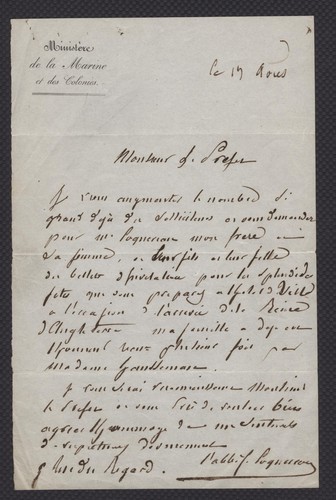 Ministère
de la Marine
et des Colonies.
le 17 Aout
Monsieur le Préfet
Je viens augmenter le nombre si
grand déjà des solliciteurs et vous demander
pour mr Coquereau mon frère et
sa femme, et leur fils et leur fille
des billets d'invitation pour les splendides
fêtes que vous préparez à l'hotel de Ville
à l'occasion de l'arrivée de la Reine
d'Angleterre ma famille a déjà eu
l'honneur reçue plusieurs fois par
Madame Haussmann.
Je vous serai reconnaissant Monsieur
le Préfet et vous prie de vouloir bien
agréer l'hommage de mes sentiments
de respectueux dévouement
l'abbé Coquereau
rue du Regard.